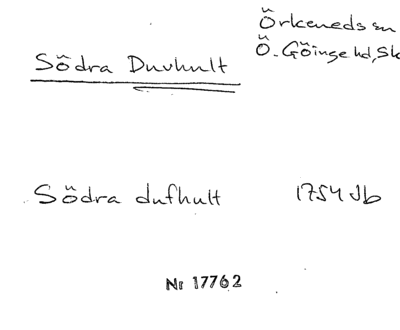 Örkeneds sn
Södra Duvhult
Ö. Göinge hd, Sk
Södra dufhult 1754 Jb
Nr 17762